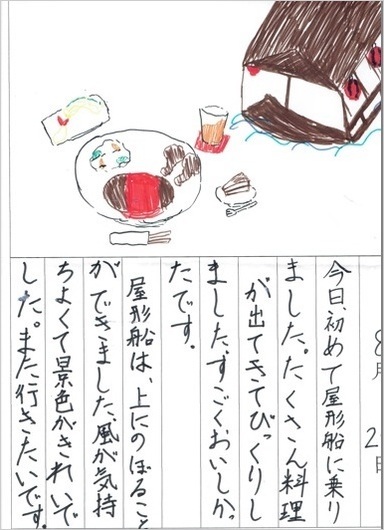 8月2日
今日、初めて屋形船に乗り
ました。たくさん料理
が出てきてびっくりし
ました。すごくおいしかっ
たです。
屋形船は、上にのぼること
ができました。風が気持
ちよくて景色がきれいで
した。また行きたいです。